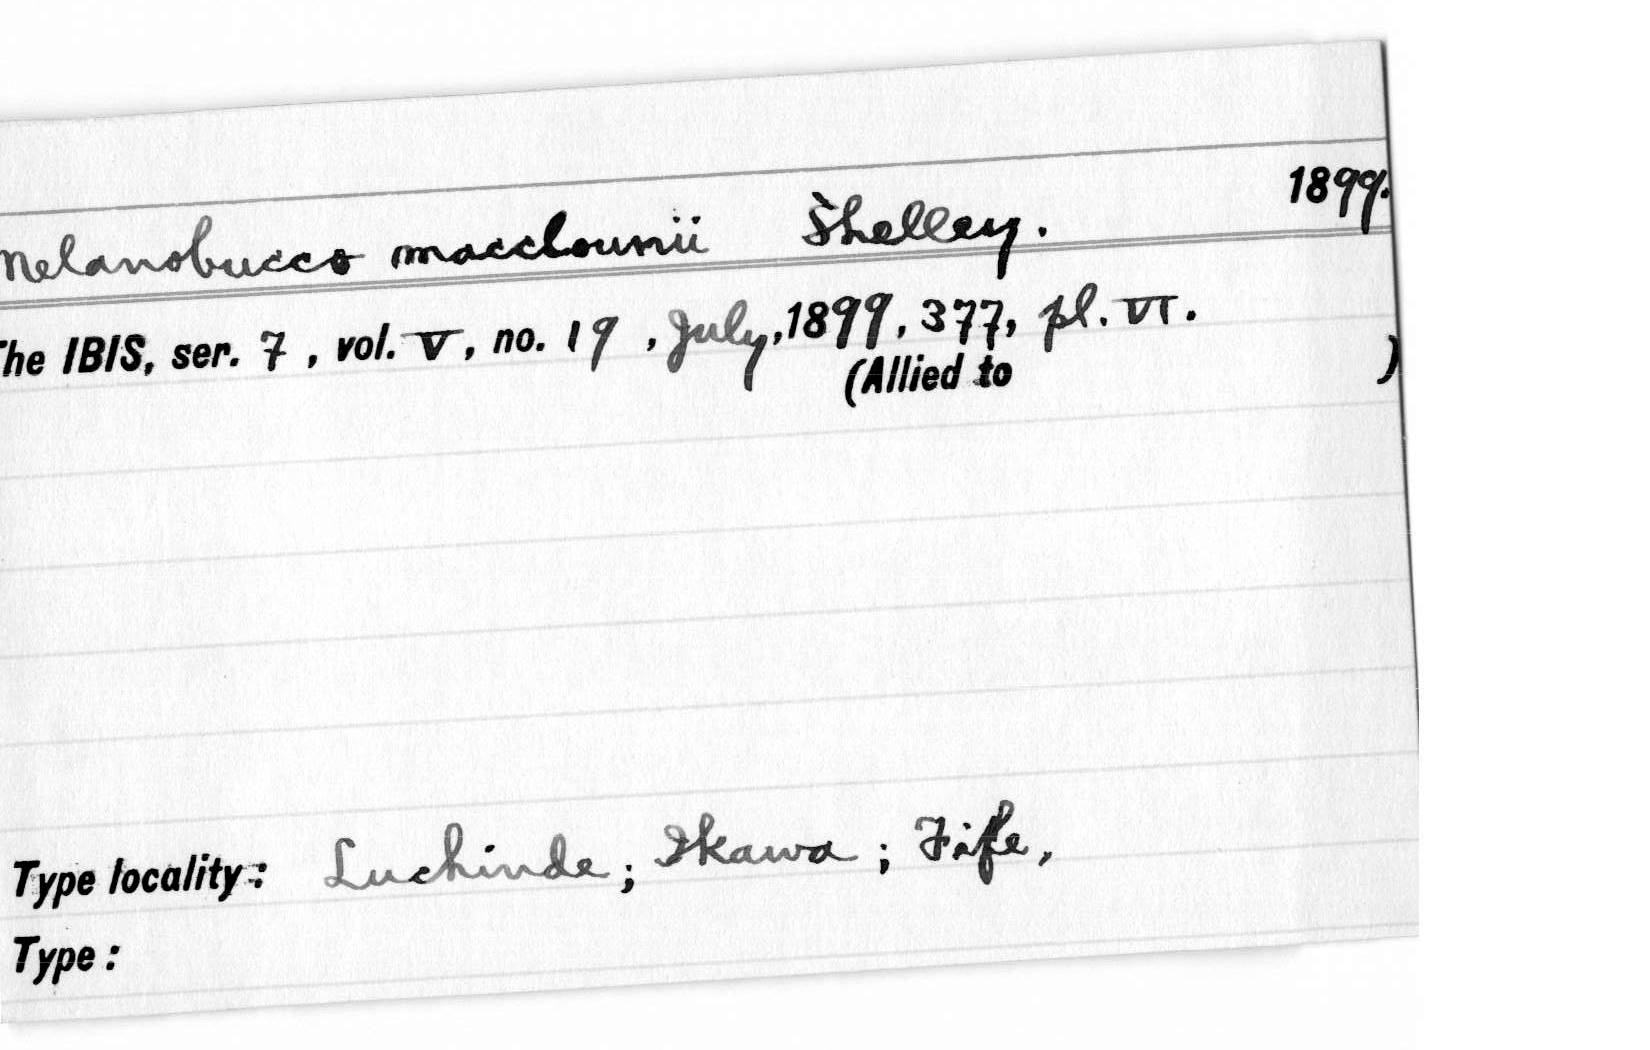 1899.
Melanobucco macclounii Shelley.
The IBIS, ser. 7, vol. V, no. 19, July, 1899, 377, pl. VI.
(Allied to )
Type locality: Luchinde; Ikawa; Fife,
Type: